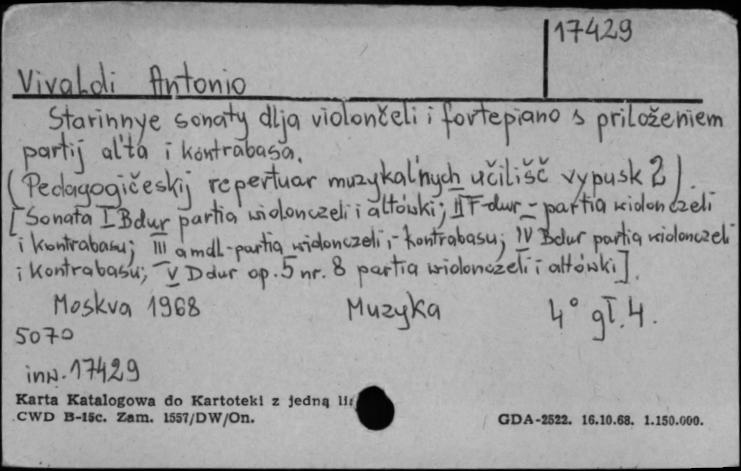 17429
Vivaldi Antonio
Starinnye sonaty dlja violončeli i fortepiano s priloženiem
partij al'ta i kontrabasa.
(Pedagogičeskij repertuar muzykal'nych učilišč vypusk 2).
[Sonata I Bdur partia wiolonczeli i altówki; II F-dur - partia wiolonczeli
i kontrabasu; III amoll-partia wiolonczeli i kontrabasu; IV Bdur partia wiolonczeli
i kontrabasu; V Ddur op.5 nr. 8 partia wiolonczeli i altówki].
Moskva 1968 Muzyka 4° gł.4.
5070
inw. 17429
Karta Katalogowa do Kartoteki z jedną
CWD B-15c. Zam. 1557/DW/On. GDA-2522. 16.10.68. 1.150.000.